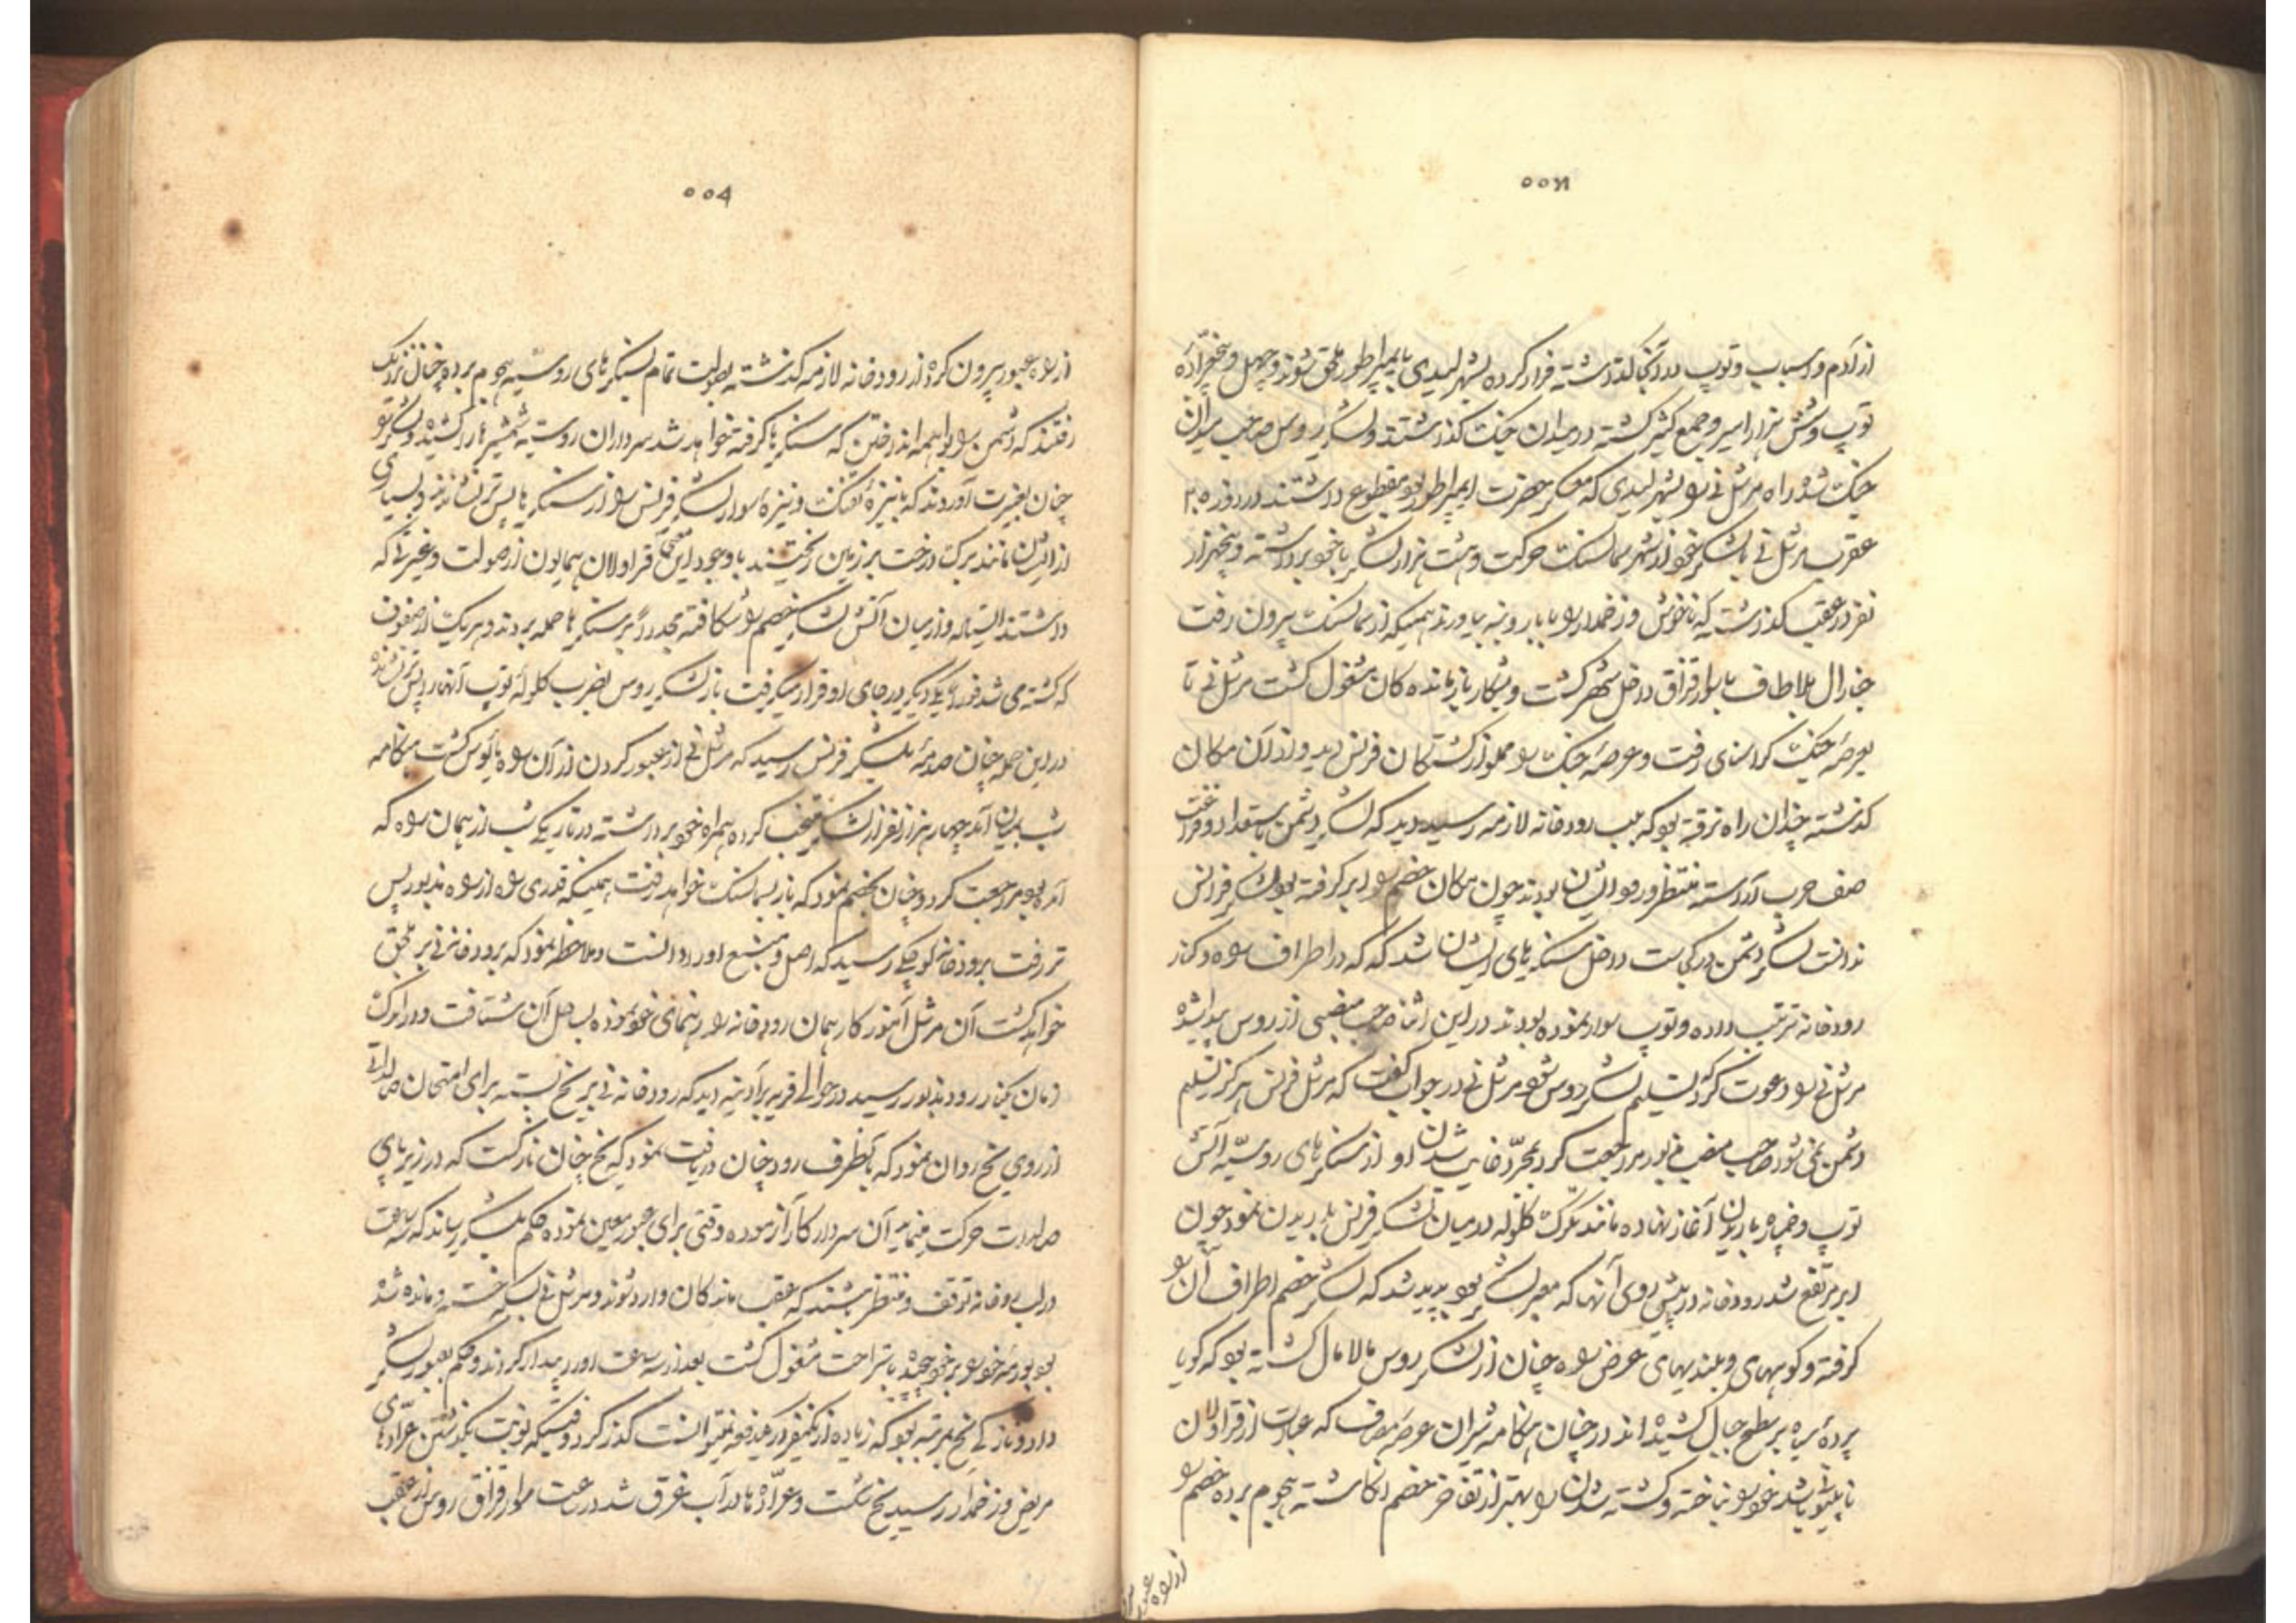 از آدم و اسباب و توپ در آنجا گذاشته فرار کرده بشهر لیدی بایمپراطور ملحق شوند و چهل و پنج عرّاده
توپ و شش هزار اسیر و جمع کثیر کشته در میدان جنک گذاشتند و لشکر روس صاحب میدان
جنک شده راه مرشل نی را بشهر لیدی که معسکر حضرت ایمپراطور بود مقطوع داشتند در روز ۲۵
عقرب مرشل نی با لشکر خود از شهر سمالنسک حرکت و هشت هزار لشکر با خود برداشته و پنجهزار
نفر در عقب گذاشته که ناخوش و زخمدار را با باروبنه بیاورند همینکه از سمالنسک بیرون رفت
جنارال پلاطاف با سوار قزاق داخل شهر گشت و بشکار بازمانده کان مشغول گشت مرشل نی تا
بعرصه جنک کراسنای رفت و عرصه جنک را مملو از کشتکان فرنس دید و از آن مکان
گذشته چندان راه نرفته بود که بلب رودخانه لازمه رسید دید که لشکر دشمن باستعداد و فراغت
صف حرب آراسته منتظر ورود ایشان بودند چون مکان خصم را ابر گرفته بود لشکر فرانس
ندانست لشکر دشمن در کجاست داخل سنکرهای ایشان شد که که در اطراف راه و کنار
رودخانه ترتیب داده و توپ سوار نموده بودند در این اثنا صاحب منصبی از روس پیدا شده
مرشل نی را دعوت کرد که تسلیم لشکر روس شود مرشل نی در جواب گفت که مرشل فرنس هرگز تسلیم
دشمن نمی شود صاحب منصب مزبور مراجعت کرد بمجرّد غایب شدن او از سنکرهای روسیّه آتش
توپ و خمپاره باریدن آغاز نهاده مانند تگرک گلوله در میان لشکر فرنس باریدن نمود چون
ابر مرتفع شد رودخانه در پیش روی آنها که معبر لشکر بود پدید شد که لشکر خصم اطراف آن را
گرفته و کوههای و بلندیهای عرض راه چنان از لشکر روس مالامال گشته بود که گویا
پردهٔ سیاه بر سطح جبال کشیده اند در چنان هنکامه شیران عرصه مصاف که عبارت از قراولان
ناپلیون باشد خود را نباخته و کشته شدن را بهتر از تفاخر خصم انکاشته هجوم برده خصم را
از راه عبور
۵۵۶
از راه عبور بیرون کرده از رودخانه لازمه گذشته بصولت تمام بسنکرهای روسیّه هجوم برده چنان نزدیک
رفتند که دشمن را واهمه انداختن که سنکرها گرفته خواهد شد سرداران روسیّه شمشیرها را کشیده و لشکر را
چنان بغیرت آوردند که با نیزهٔ تفنک و نیزه سوار لشکر فرنس را از سنکرها پس تر نشاندند و بسیاری
از ایشان مانند برک درخت بر زمین ریختند با وجود این همه قراولان همایون از صولت و غیرتی که
داشتند ایستاده و از میان آتش لشکر خصم را شکافته مجدد بر سنکرها حمله بردند و هر یک از صفوف
که کشته می شد فوراً یکی دیگر در جای او قرار میگرفت باز لشکر روس بضرب گلوله توپ آنها را پس تر نشانده
در این حمله چنان صدمه بلشکر فرنس رسید که مرشل نی از عبور کردن از آن راه مأیوس گشت هنکامه
شب بمیان آمد چهار هزار نفر از لشکر منتخب کرده همراه خود برداشته در تاریکی شب از همان راه که
آمده بود مراجعت کرد و چنان بخصم نمود که باز بسمالنسک خواهد رفت همینکه قدری راه از راه مزبور پس
تر رفت برودخانه کوچکی رسید که اصل و منبع او را دانست و ملاحظه نمود که برودخانه نی بر ملحق
خواهد گشت آن مرشل آزموده کار همان رودخانه را رهنمای خود نموده بساحل آن شتافت و در اندک
زمان بکنار رود مزبور رسید در حوالی قریه برادنیه دید که رودخانه نی بر یخ بسته برای امتحان صالداتی
از روی یخ روان نمود که بآنطرف رود چنان دریافت نمود که یخ چنان نازکست که در زیر پای
صالدات حرکت مینماید آن سردار کارآزموده وقتی برای عبور معین نموده حکم بلشکر رساند که سه ساعت
در لب رودخانه توقف و منتظر باشند که عقب ماندکان وارد شوند و مرشل نی بسکه خسته و مانده شده
بود بورمه خود را بر خود پیچیده باستراحت مشغول گشت بعد از سه ساعت او را بیدار کردند و حکم بعبور لشکر
داد و نازکی یخ بمرتبه بود که زیاده از یکنفر در یکدفعه نمیتوانست گذر کرد وقتیکه نوبت بگذشتن عرّادهای
مریض و زخمدار رسید یخ شکست و عرّاده ها در آب غرق شد در ساعت سوار قزاق روس از عقب